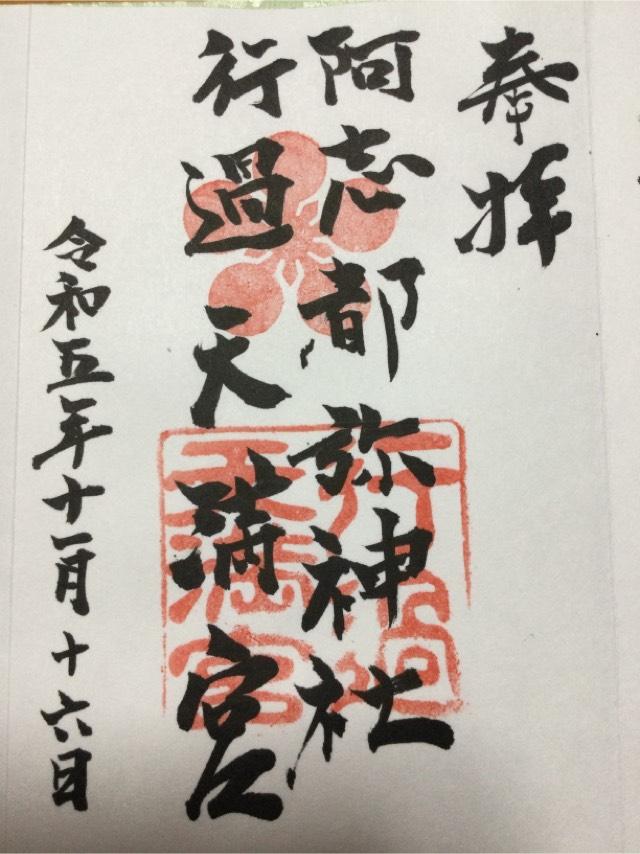 奉拝
阿志都弥神社
行過天満宮
令和五年十一月十六日
行過
天満宮